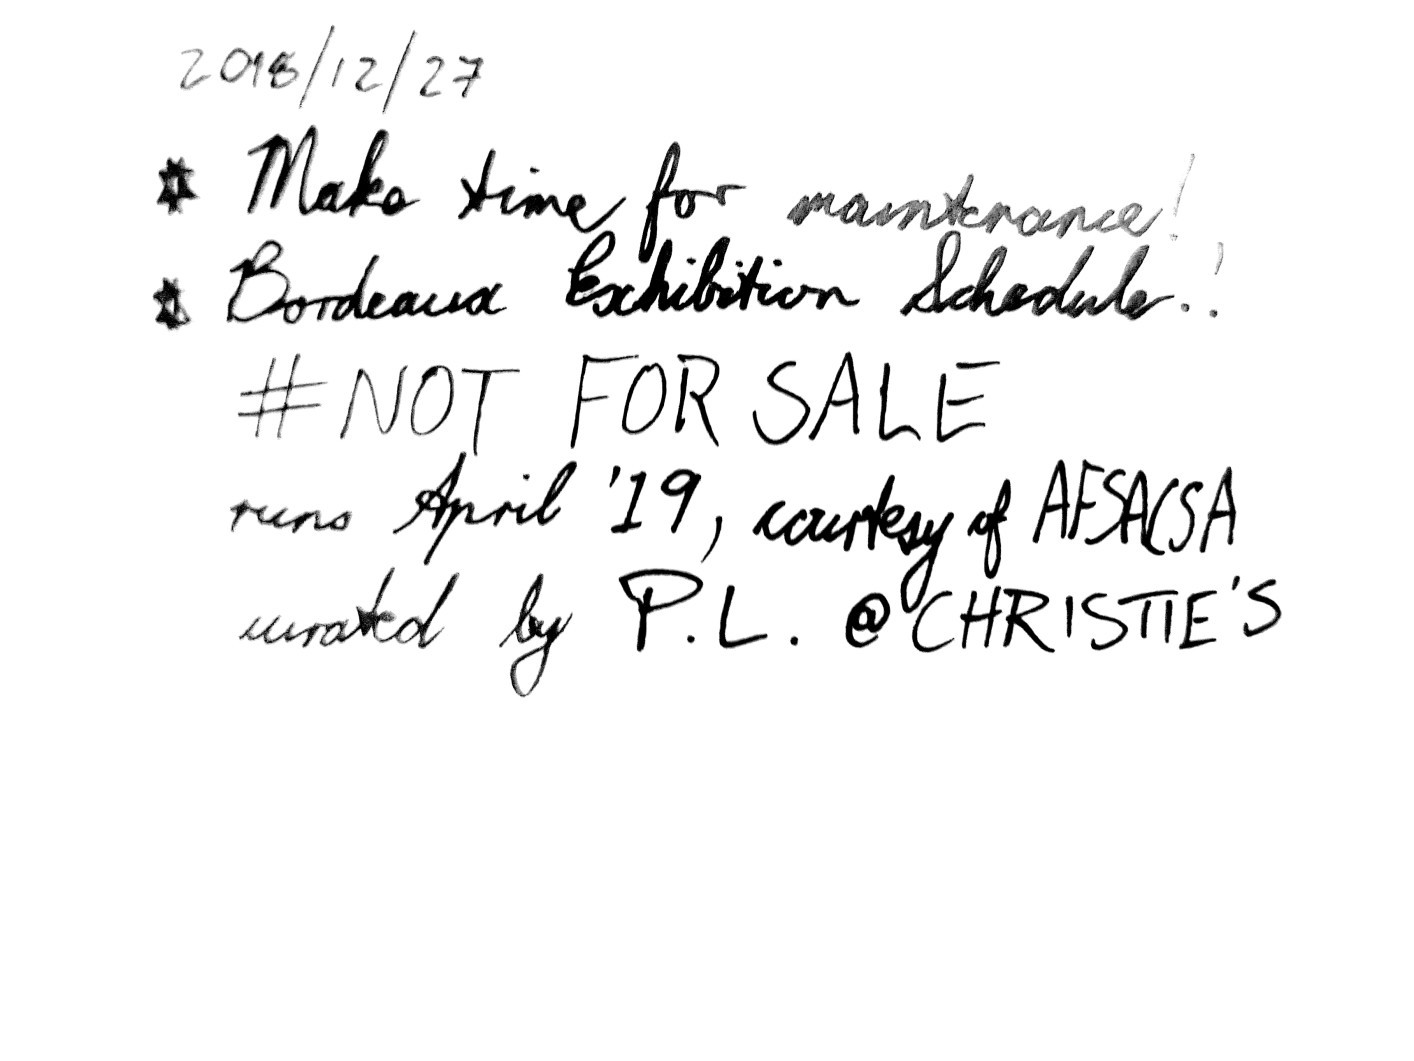 2018/12/27
* Make time for maintenance!
* Bordeaux Exhibition Schedule.!
#NOT FOR SALE
runs April '19, courtesy of AFSACSA
curated by P.L. @CHRISTIE'S